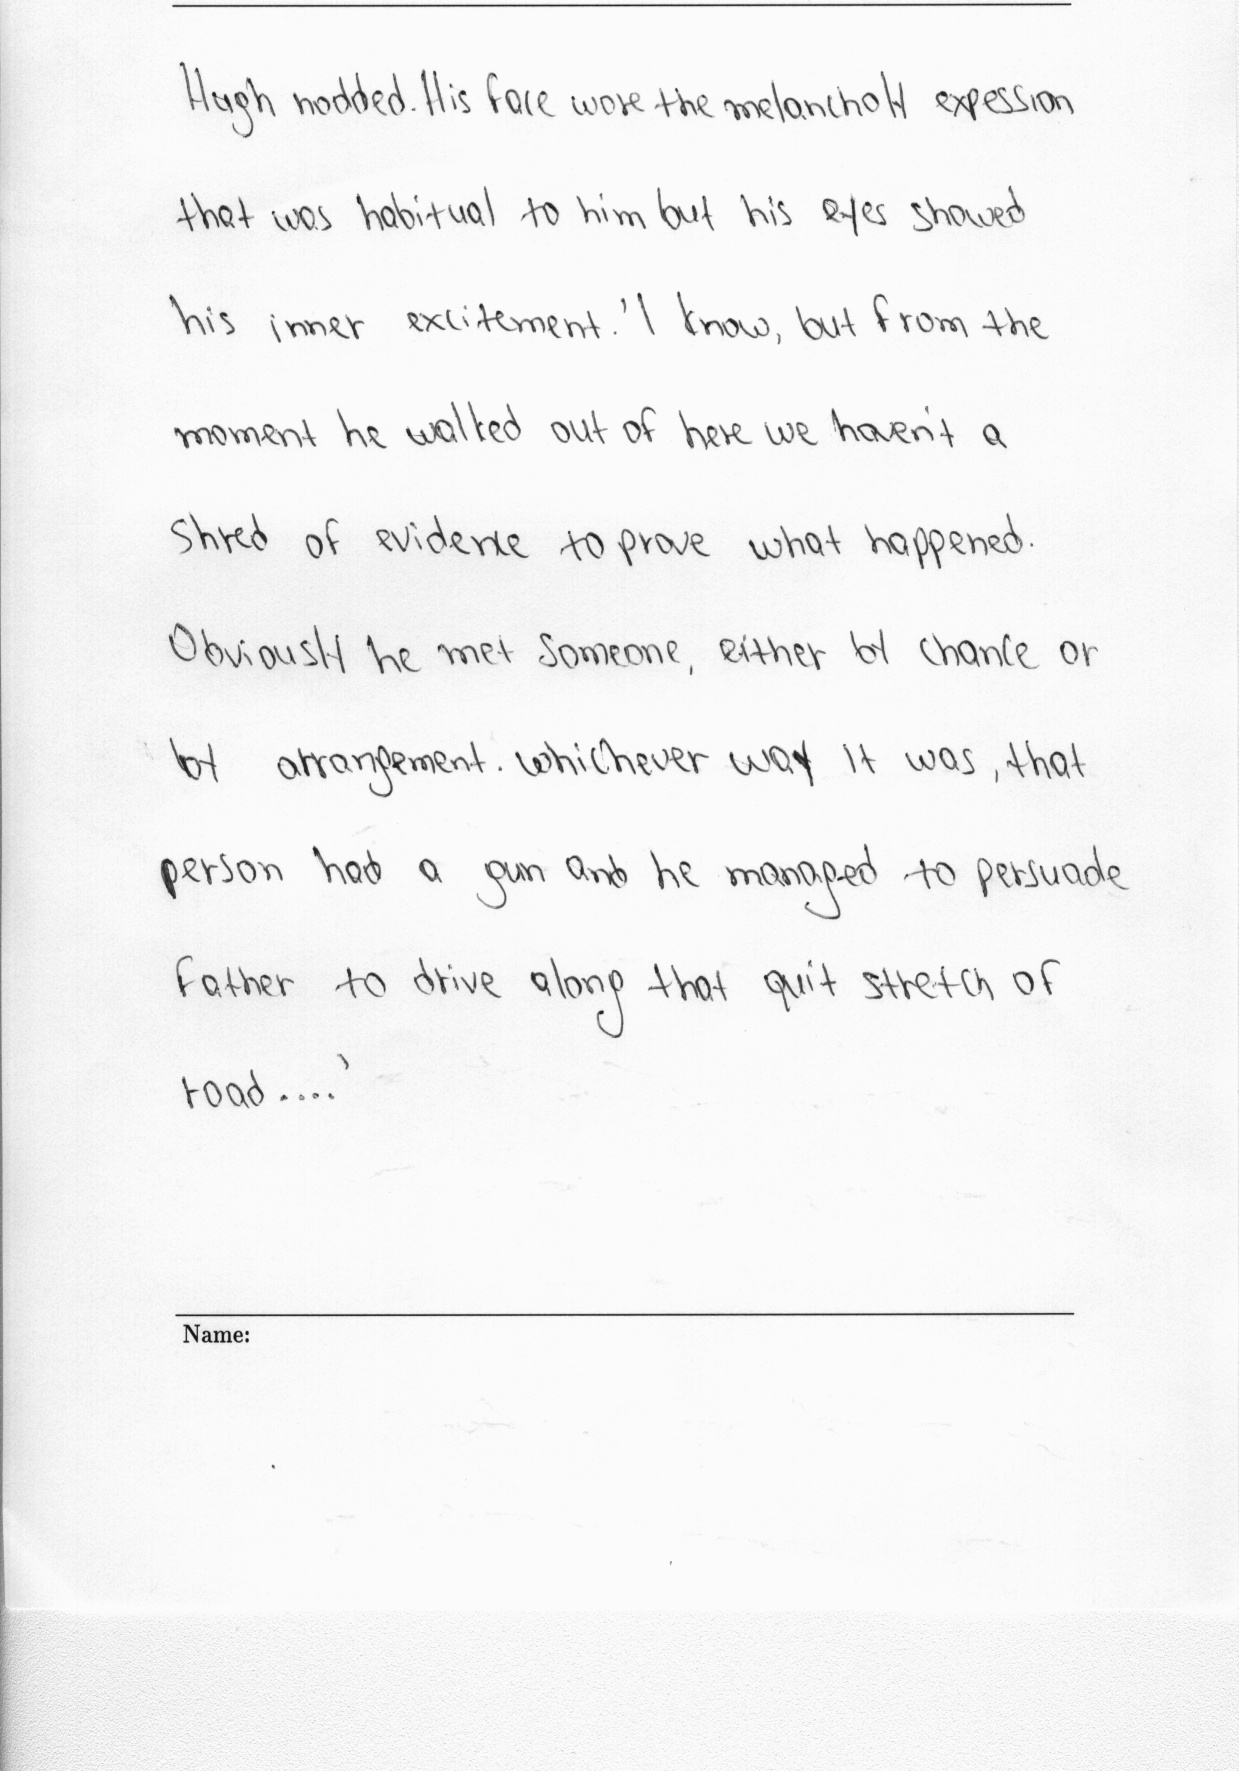 Hugh nodded. His face wore the melancholy expession
that was habitual to him but his eyes showed
his inner excitement. 'I know, but from the
moment he walked out of here we haven't a
shred of evidence to prove what happened.
Obviously he met someone, either by chance or
by arrangement. whichever way it was, that
person had a gun and he managed to persuade
father to drive along that quit stretch of
road....'
Name: